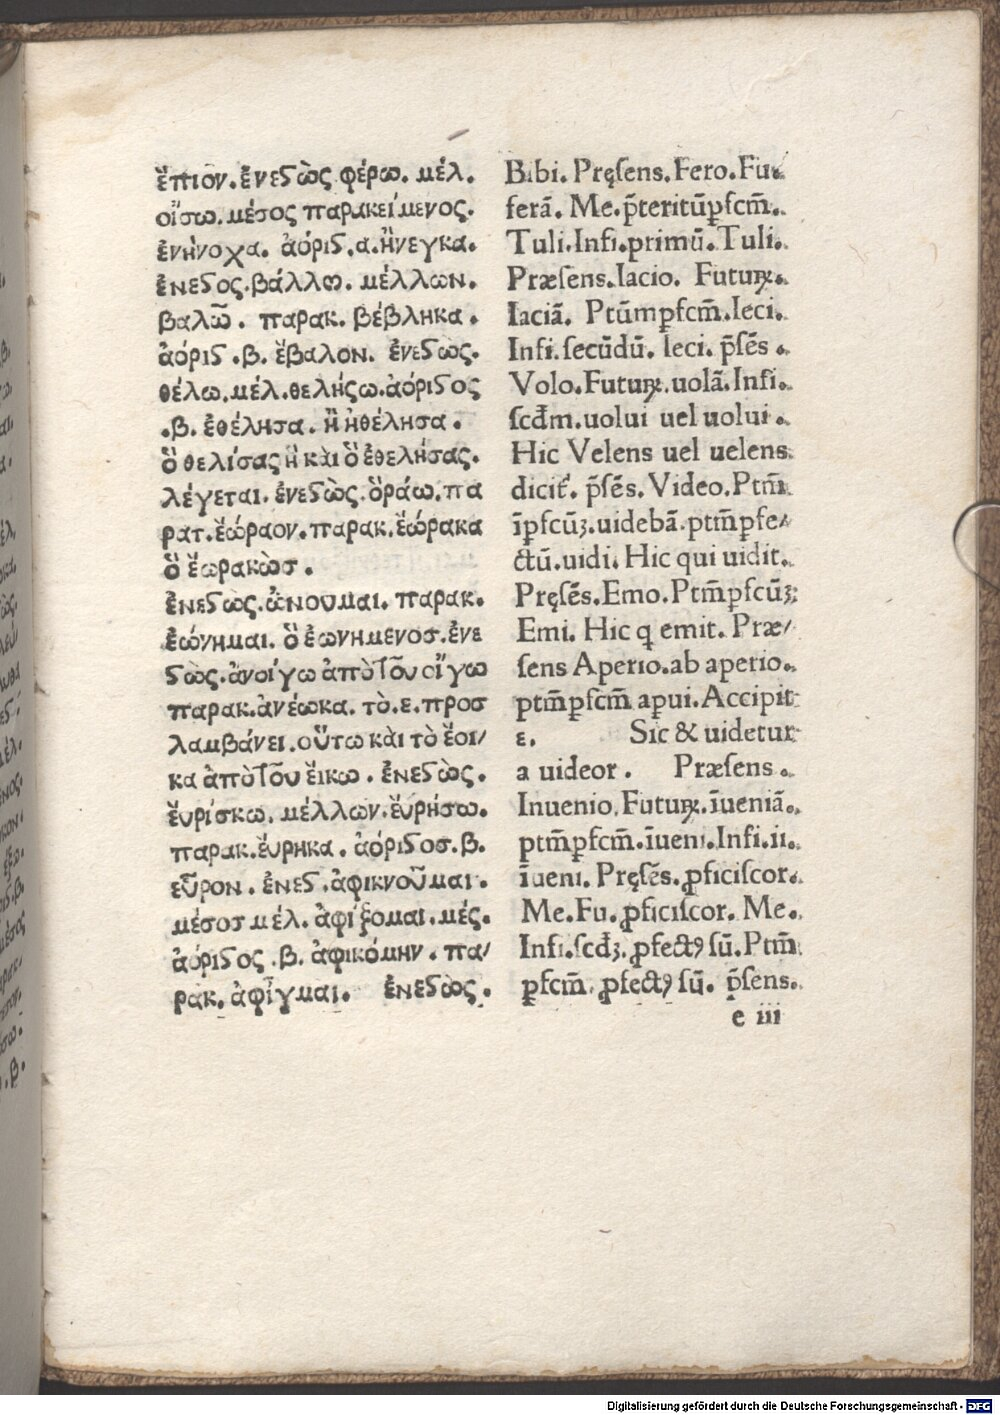 ἔπιον. ἐνεϛὼς φέρω. μέλ.
οἴσω. μέσος παρακείμενος.
ἐνήνοχα. ἀόριϛ. α. ἤνεγκα.
ἐνεϛος. βάλλω. μέλλων.
βαλῶ. παρακ. βέβληκα.
ἀόριϛ. β. ἔβαλον. ἐνεϛὼς.
θέλω. μέλ. θελήσω. ἀόριϛος
.β. ἐθέλησα. ἢ ἠθέλησα.
ὃ θελίσας ἢ κὰι ὃ ἐθελήσας.
λέγεται. ἐνεϛὼς. ὃράω. πα
ρατ. ἑώραον. παρακ. ἑώρακα
ὃ ἑωρακὼσ.
ἐνεϛὼς. ὠνουμαι. παρακ.
ἐώνημαι. ὃ ἐωνημενοσ. ἐνε
ϛὼς. ἀνοίγω ἀπὸ τοῦ οἴγω
παρακ. ἀνέωκα. τὸ .ε. προσ
λαμβάνει. οὕτω κὰι τὸ ἔοι/
κα ἀπὸ τοῦ ἔικω. ἐνεϛὼς.
ἕυρίσκω. μέλλων. ἕυρήσω.
παρακ. ἕυρηκα. ἀόριϛοσ. β.
εὗρον. ἐνεϛ. ἀφικνοῦμαι.
μέσοσ μέλ. ἀφίξομαι. μές.
ἀόριϛος. β. ἀφικόμην. πα/
ρακ. ἀφῖγμαι. ἐνεϛὼς.
Bibi. Pręſens. Fero. Fu.
ferā. Me. p̄teritūꝑfcm̄.
Tuli. Infi. primū. Tuli.
Præſens. Iacio. Futuꝝ.
Iaciā. Ptūmꝑfcm̄. Ieci.
Infi. ſecūdū. Ieci. p̄ſēs.
Volo. Futuꝝ. uolā. Infi.
ſcđm. uolui uel uolui.
Hic Velens uel uelens
dicit᷑. p̄ſēs. Video. Ptm̄
īꝑfcūꝫ. uidebā. ptm̄ꝑfe/
ctū. uidi. Hic qui uidit.
Pręſēs. Emo. Ptm̄ꝑfcūꝫ
Emi. Hic q emit. Præ/
ſens Aperio. ab aperio.
ptm̄ꝑfcm̄ apui. Accipit
ε. Sic & uidetur
a uideor. Præſens.
Inuenio. Futuꝝ. īueniā.
ptm̄ꝑfcm̄. īueni. Infi. ii.
īueni. Pręſēs. ꝓficiſcor.
Me. Fu. ꝓficiſcor. Me.
Infi. ſcđꝫ. ꝓfectꝰ ſū. Ptm̄
ꝑfcm̄. ꝓfectꝰ ſū. p̄ſens.
e iii
Digitalisierung gefördert durch die Deutsche Forschungsgemeinschaft - DFG